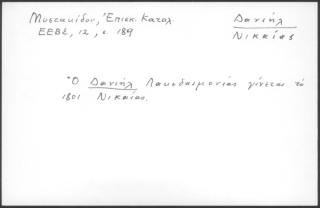 Μυστακίδου, Ἐπισκ. Καταλ.
ΕΕΒΣ, 12, σ. 189
Δανιήλ
Νικαίας
Ὁ Δανιήλ Λακεδαιμονίας γίνεται τὸ
1801 Νικαίας.